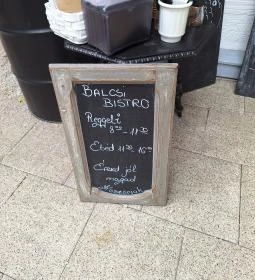 BALCSI
BISTRO
Reggeli
8⁰⁰ - 11³⁰
Ebéd 11³⁰ - 16⁰⁰
Érezd jól
magad